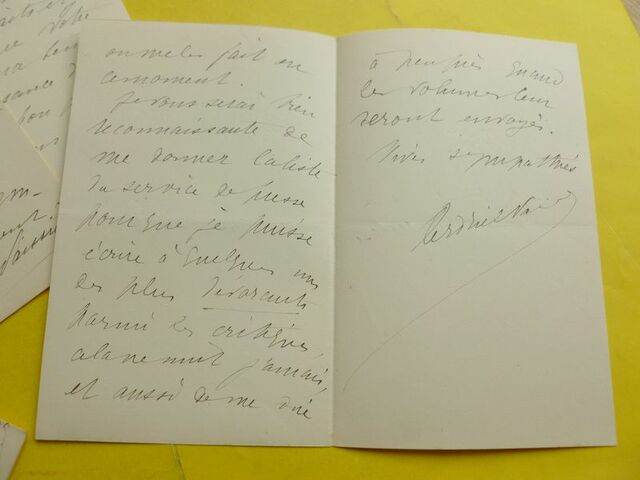 on me les fait en
ce moment.
Je vous serai bien
reconnaissante de
me donner la liste
du service de presse
pour que je puisse
écrire à quelques uns
les plus dévorants
parmi les critiques,
cela ne nuit jamais,
et aussi de me dire
à peu près quand
les volumes leur
seront envoyés.
Vives sympathies